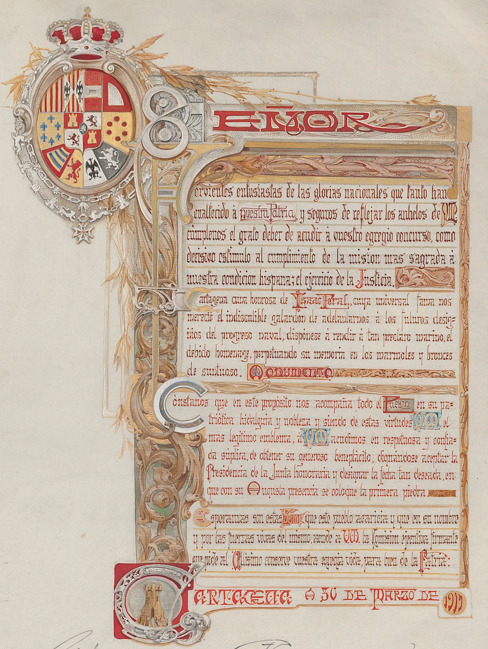 SEÑOR
Fervientes entusiastas de las glorias nacionales que tanto han
enaltecido á nuestra Patria, y seguros de reflejar los anhelos de VM
cumplenos el grato deber de acudir a vuestro egregio concurso, como
decisivo estimulo al cumplimiento de la mision mas sagrada a
nuestra condición hispana: el ejercicio de la Justicia.
Cartagena cuna honrosa de Isaac Peral, cuya universal fama nos
merece el indiscutible galardon de adelantarnos á los futuros desig-
nios del progreso naval, dispónese a rendir á tan preclaro marino, el
debido homenage, perpetuando su memoria en los marmoles y bronces
de suntuoso Monumento
Cónstanos que en este propósito nos acompaña todo el Pueblo en su pa-
triótica hidalguia y nobleza y siendo de estas virtudes VM el
mas legitimo emblema, á VM acudimos en respetuosa y confia-
da súplica, de obtener su generoso beneplácito, dignandose aceptar la
Presidencia de la Junta honoraria y designar la fecha tan deseada, en
que con su Augusta presencia se coloque la primera piedra
Esperanzas son estas Señor que este pueblo acaricia y que en su nombre
y por las fuerzas vivas del mismo, eleva a VM la Comision ejecutiva firmante
que pide al Altisimo conserve vuestra egregia vida, para bien de la Patria.
CARTAGENA A 30 DE MARZO DE 1919